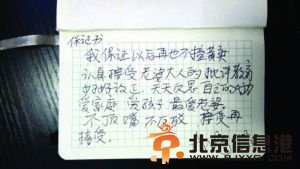 保证书
我保证以后再也不擅卖
认真接受老婆大人的批评教育
由好好改正 天天反思自己的
爱家庭 爱孩子 最爱老婆
不顶嘴 不反驳 接受再
接受。
北京信息港